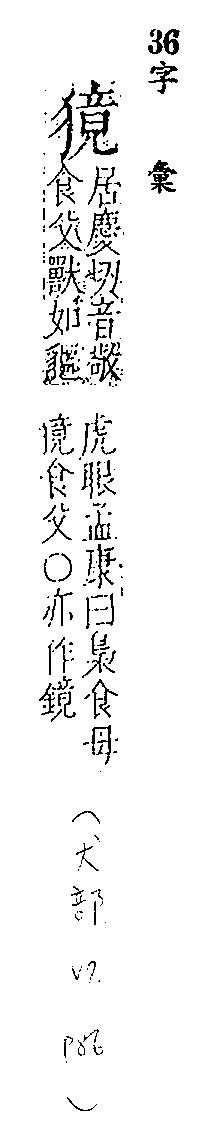 36字彙
獍
居慶切音敬
食父獸如貙
虎眼孟康曰梟食母
獍食父〇亦作鏡
(犬部)